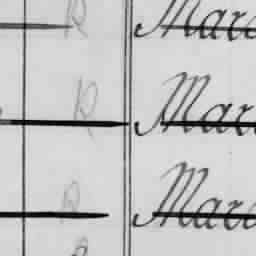 R Marc
R Marc
R Marc
R